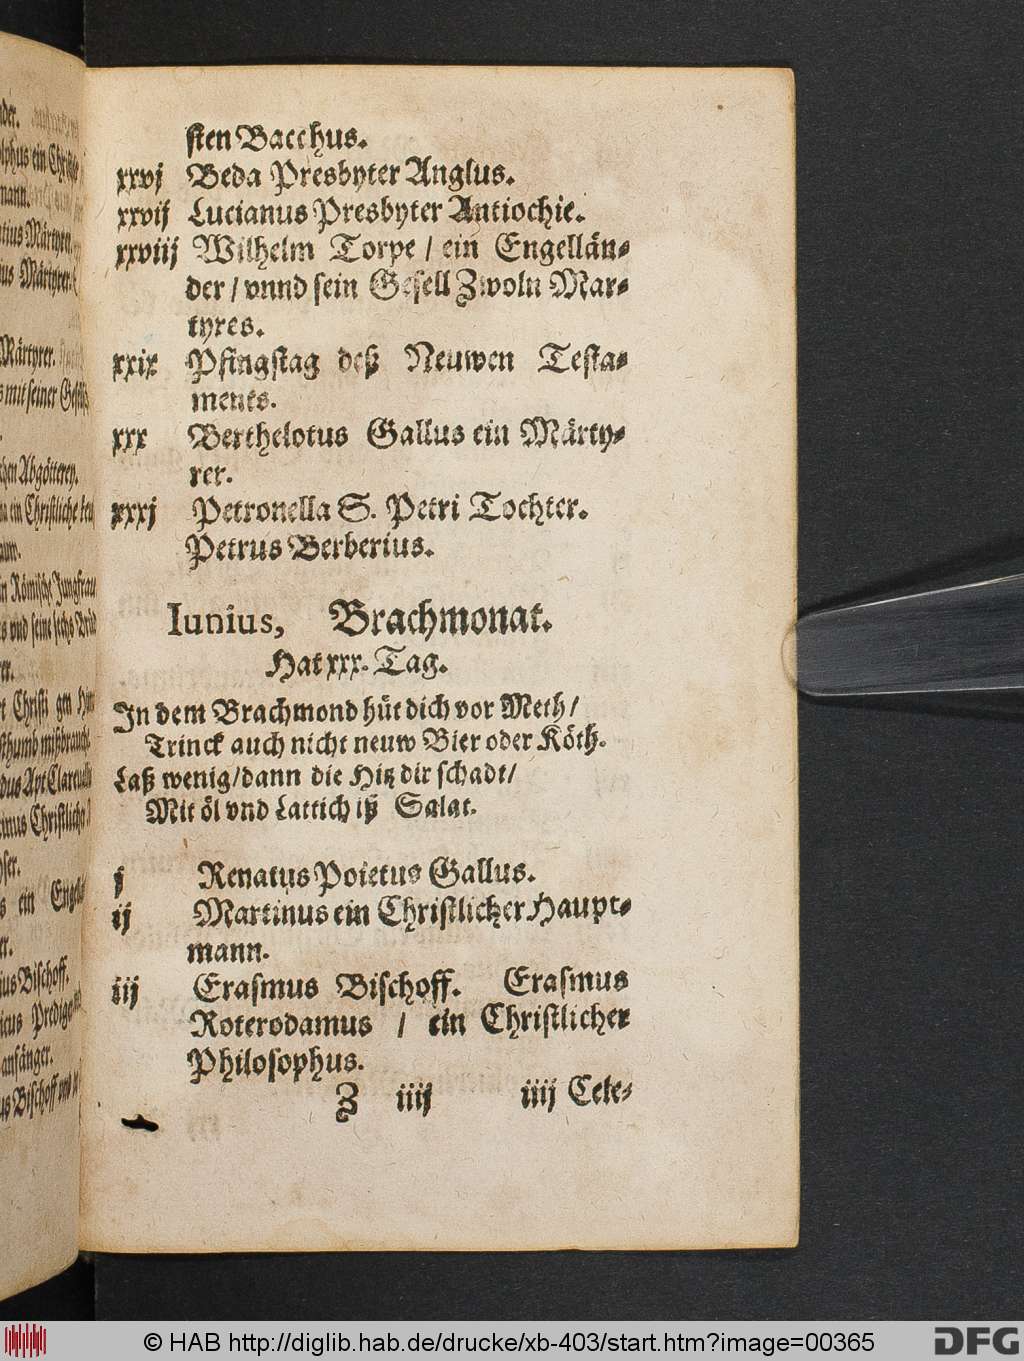 sten Bacchus.
xxvj Beda Presbyter Anglus.
xxvij Lucianus Presbyter Antiochie.
xxviij Wilhelm Torpe / ein Engellän-
der / vnnd sein Gesell Zwoln Mar-
tyres.
xxix Pfingstag deß Neuwen Testa-
ments.
xxx Berthelotus Gallus ein Märty-
rer.
xxxj Petronella S. Petri Tochter.
Petrus Berberius.
Iunius, Brachmonat.
Hat xxx. Tag.
In dem Brachmond hüt dich vor Meth /
Trinck auch nicht neuw Bier oder Köth.
Laß wenig / dann die Hitz dir schadt /
Mit öl vnd Lattich iß Salat.
j Renatus Poietus Gallus.
ij Martinus ein Christlicher Haupt-
mann.
iij Erasmus Bischoff. Erasmus
Roterodamus / ein Christlicher
Philosophus.
Z iiij iiij Cele-
© HAB http://diglib.hab.de/drucke/xb-403/start.htm?image=00365
DFG